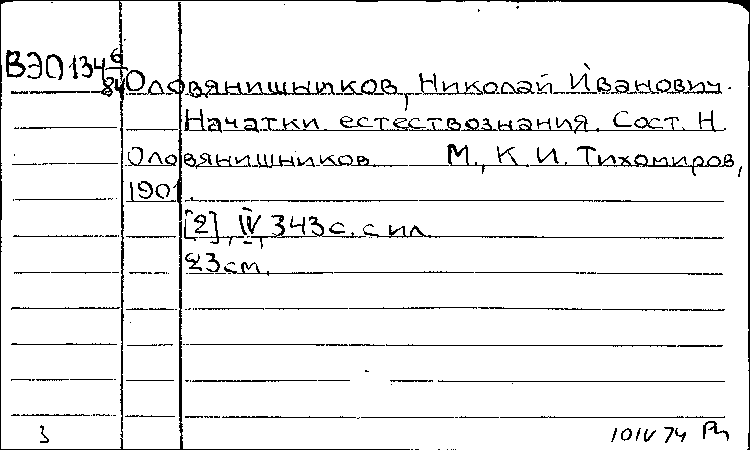 ВЭО 134 6/84
Оловянишников, Николай Иванович.
Начатки естествознания. Сост. Н.
Оловянишников. М., К. И. Тихомиров,
1901.
[2], IV, 343 с. с ил.
23 см.
3 10 IV 74